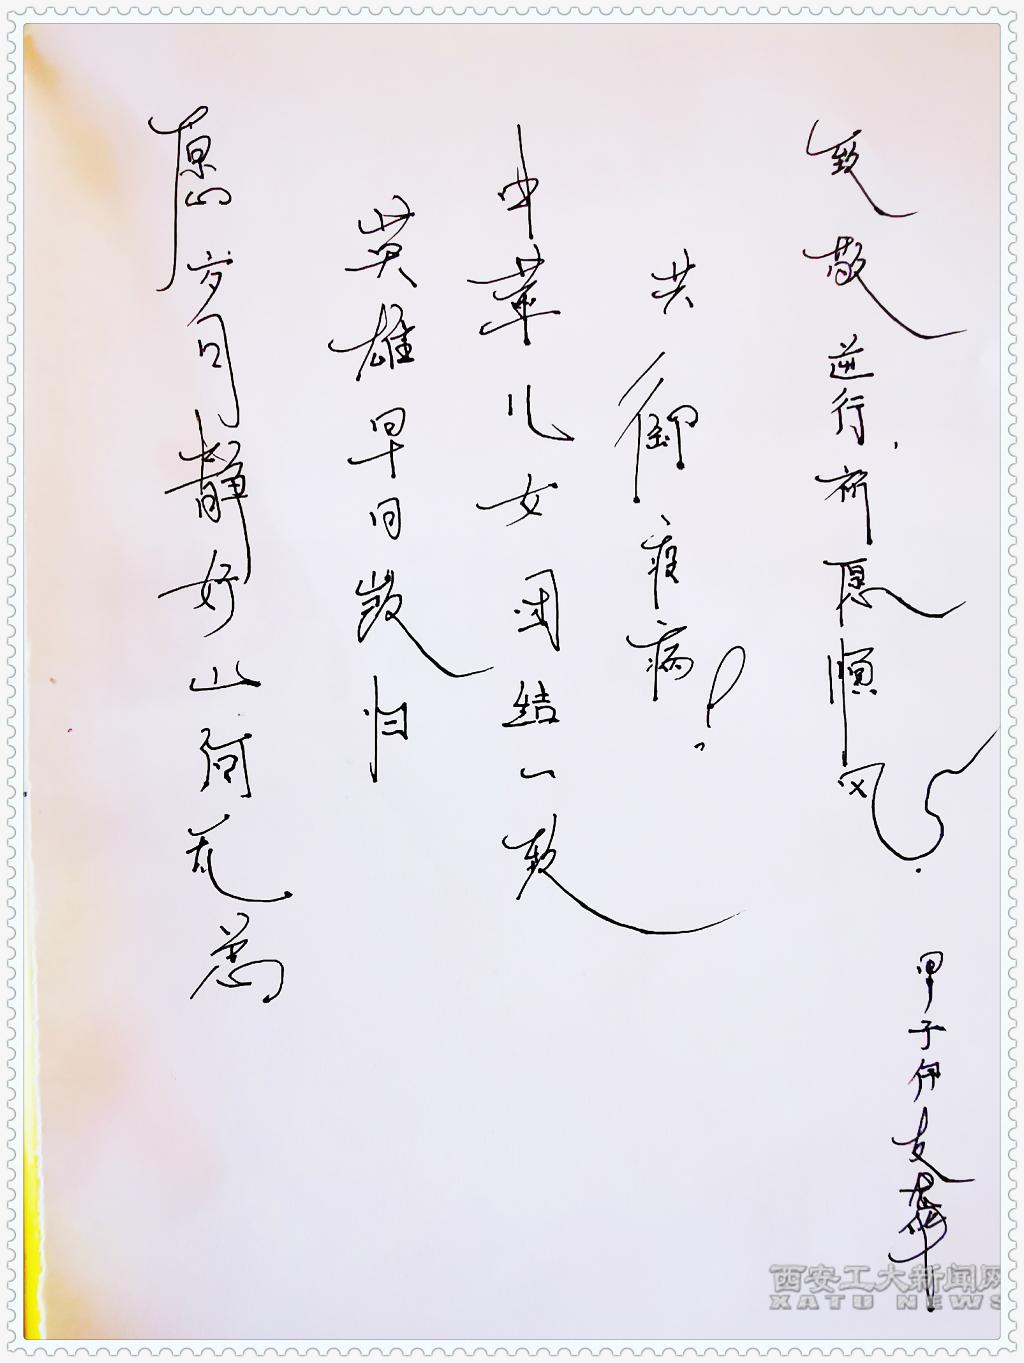 愿岁月静好山河无恙
英雄早日凯归
中华儿女团结一致
共御疫病!
致敬逆行,祈愿顺风。
甲子伊友
西安工大新闻网
XATU NEWS